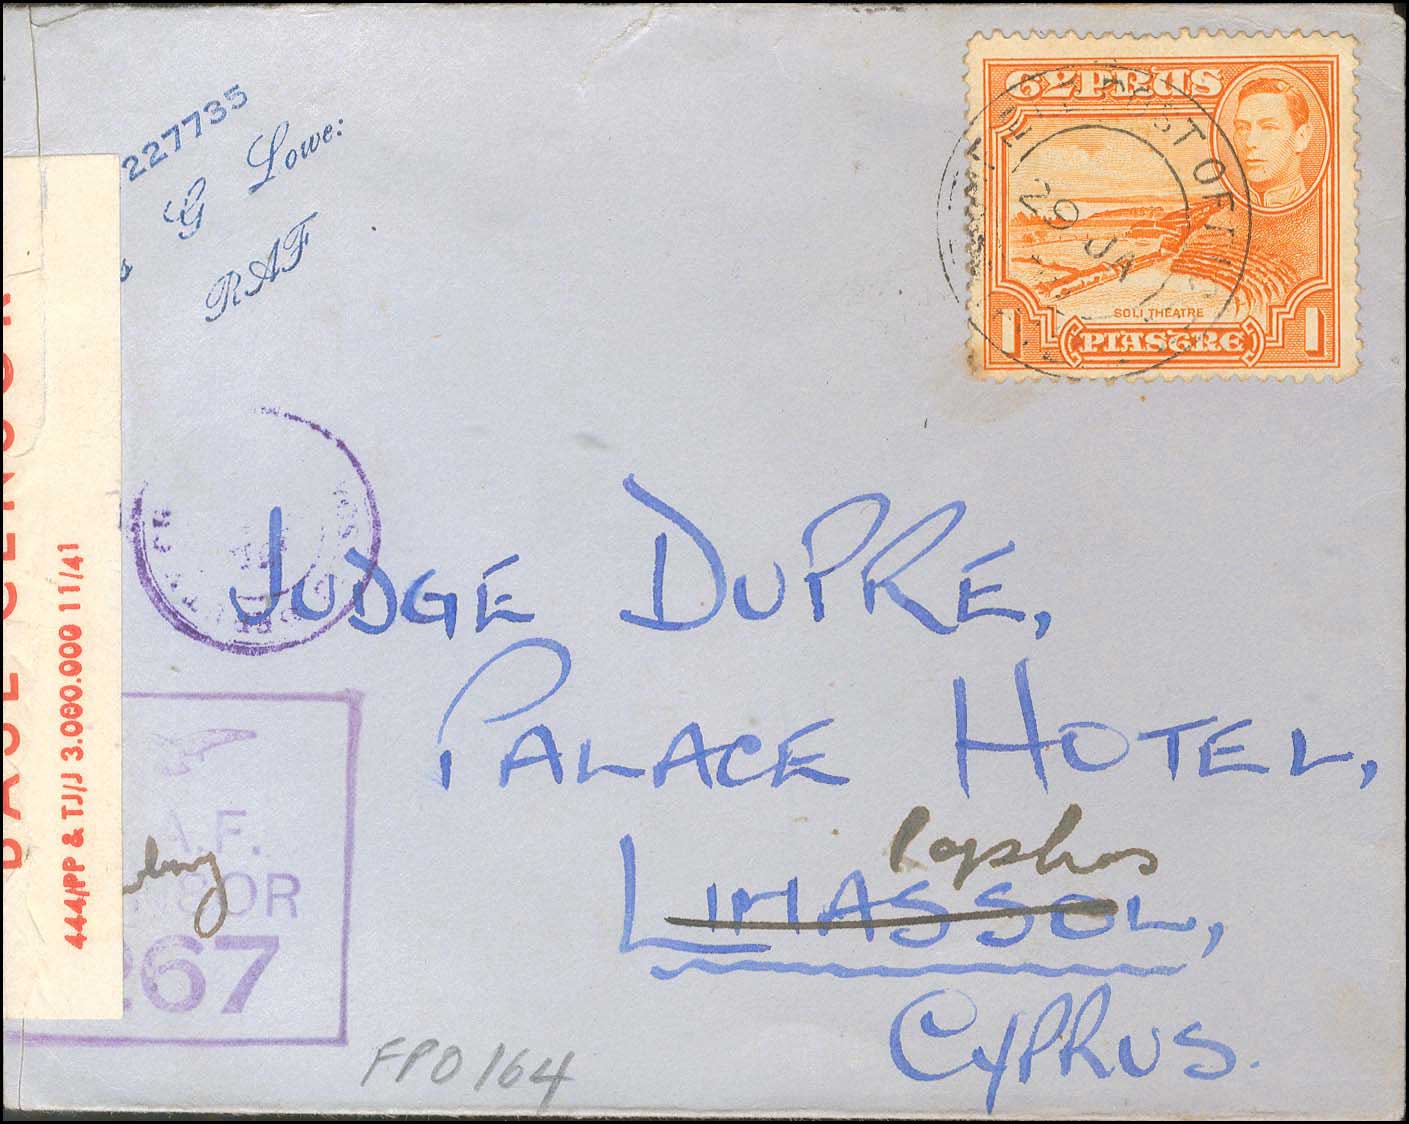 227735
G Lowe:
RAF
CYPRUS
SOLI THEATRE
1 PIASTRE 1
29 JA
BASE CENSOR
444/PP & TJ/J 3.000.000 11/41
JUDGE DUPRE,
PALACE HOTEL,
LIMASSOL,
CYPRUS.
A.F.
NSOR
267
FPO 164